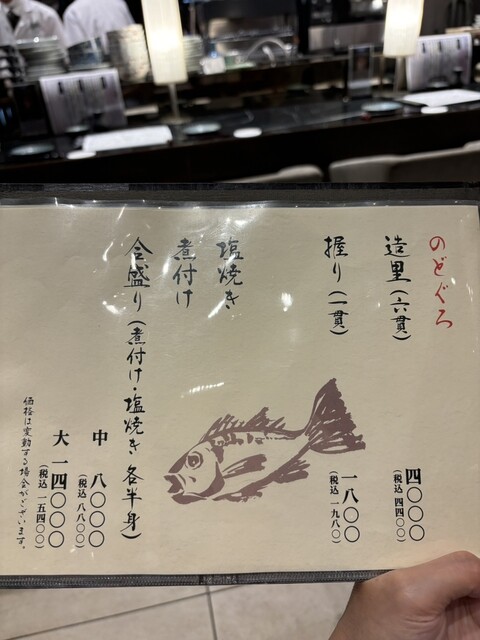 のどぐろ
造里(六貫)
四〇〇〇
(税込 四四〇〇)
握り(一貫)
一八〇〇
(税込 一九八〇)
塩焼き
煮付け
合盛り(煮付け・塩焼き 各半身)
中 八〇〇〇
(税込 八八〇〇)
大 一四〇〇〇
(税込 一五四〇〇)
価格は変動する場合がございます。